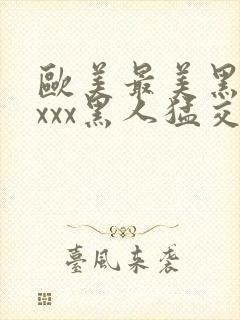 歐美最美黑
xxx黑人猛交
臺風來襲